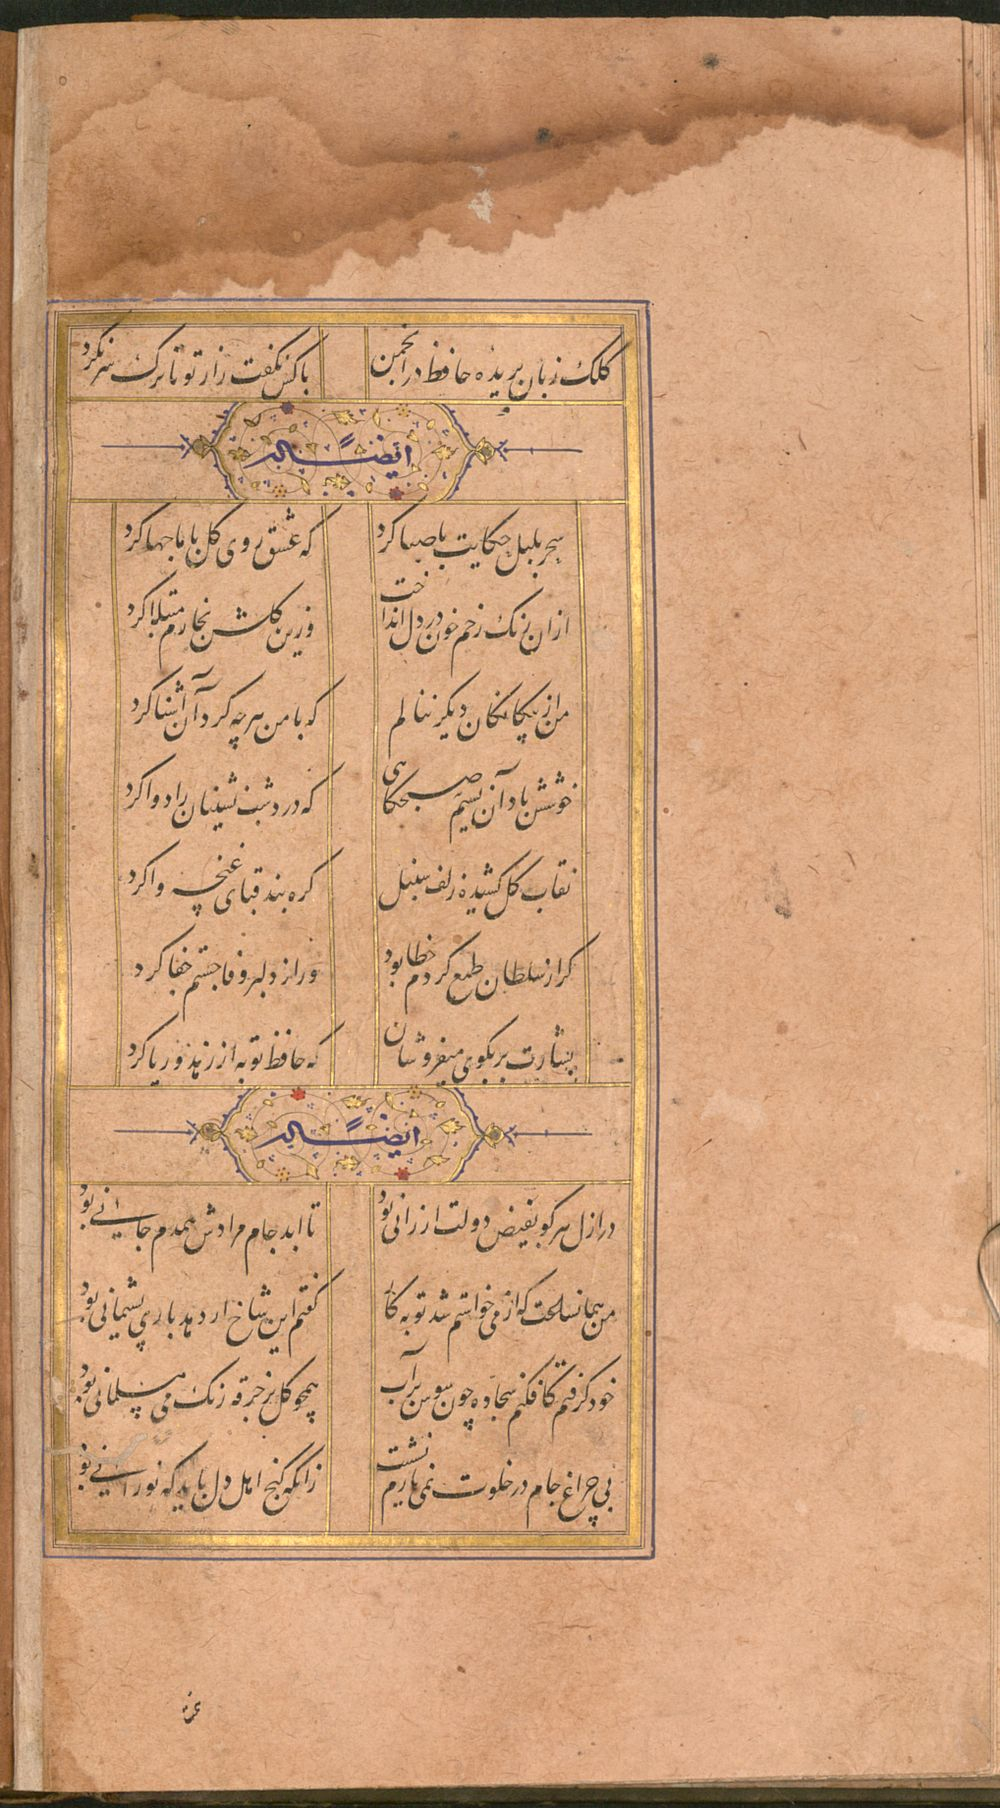 کلک زبان بریده حافظ در انجمن باکس نگفت راز تو تا ترک سر نکرد
ایضاً له
سحر بلبل حکایت با صبا کرد که عشق روی کل با ما جها کرد
ازان رنک زخم خون در دل انداخت وزین کلشن بخارم مبتلا کرد
من از بیکانکان دیکر ننالم که با من هرچه کرد آن آشنا کرد
خوشش باد آن نسیم صبحکاهی که درد شب نشینان را دوا کرد
نقاب کل کشیده زلف سنبل کره بند قبای غنچه واکرد
کر از سلطان طمع کردم خطا بود ور از دلبر وفا جستم جفا کرد
بشارت بر بکوی میفروشان که حافظ توبه از زهد و ریا کرد
ایضاً له
در ازل هر کو بفیض دولت ارزانی بود تا ابد جام مرادش همدم جانی بود
من همانساعت که از می خواستم شد توبه کار کفتم این شاخ ار دهد باری پشیمانی بود
خود کرفتم کافکنم سجاده چون سوسن بر آب همچو کل بر خرقه رنک می مسلمانی بود
بی چراغ جام در خلوت نمی یارم نشست زانکه کنج اهل دل باید که نورانی بود